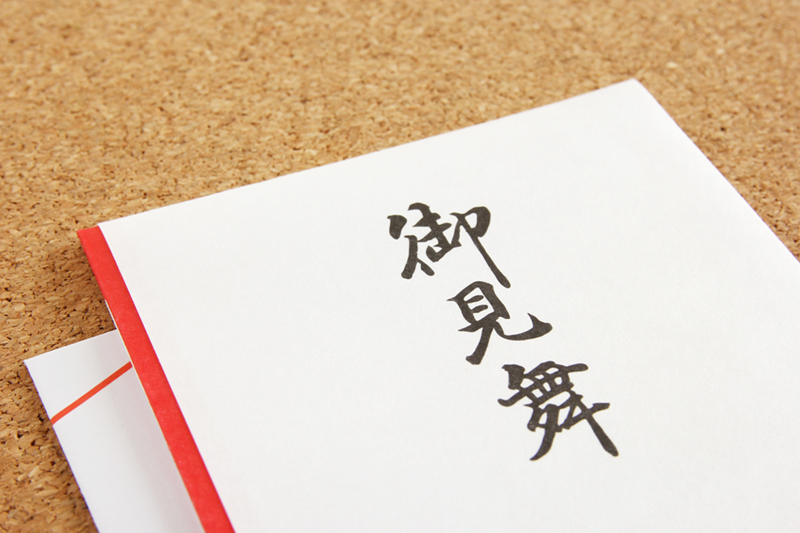 御見舞